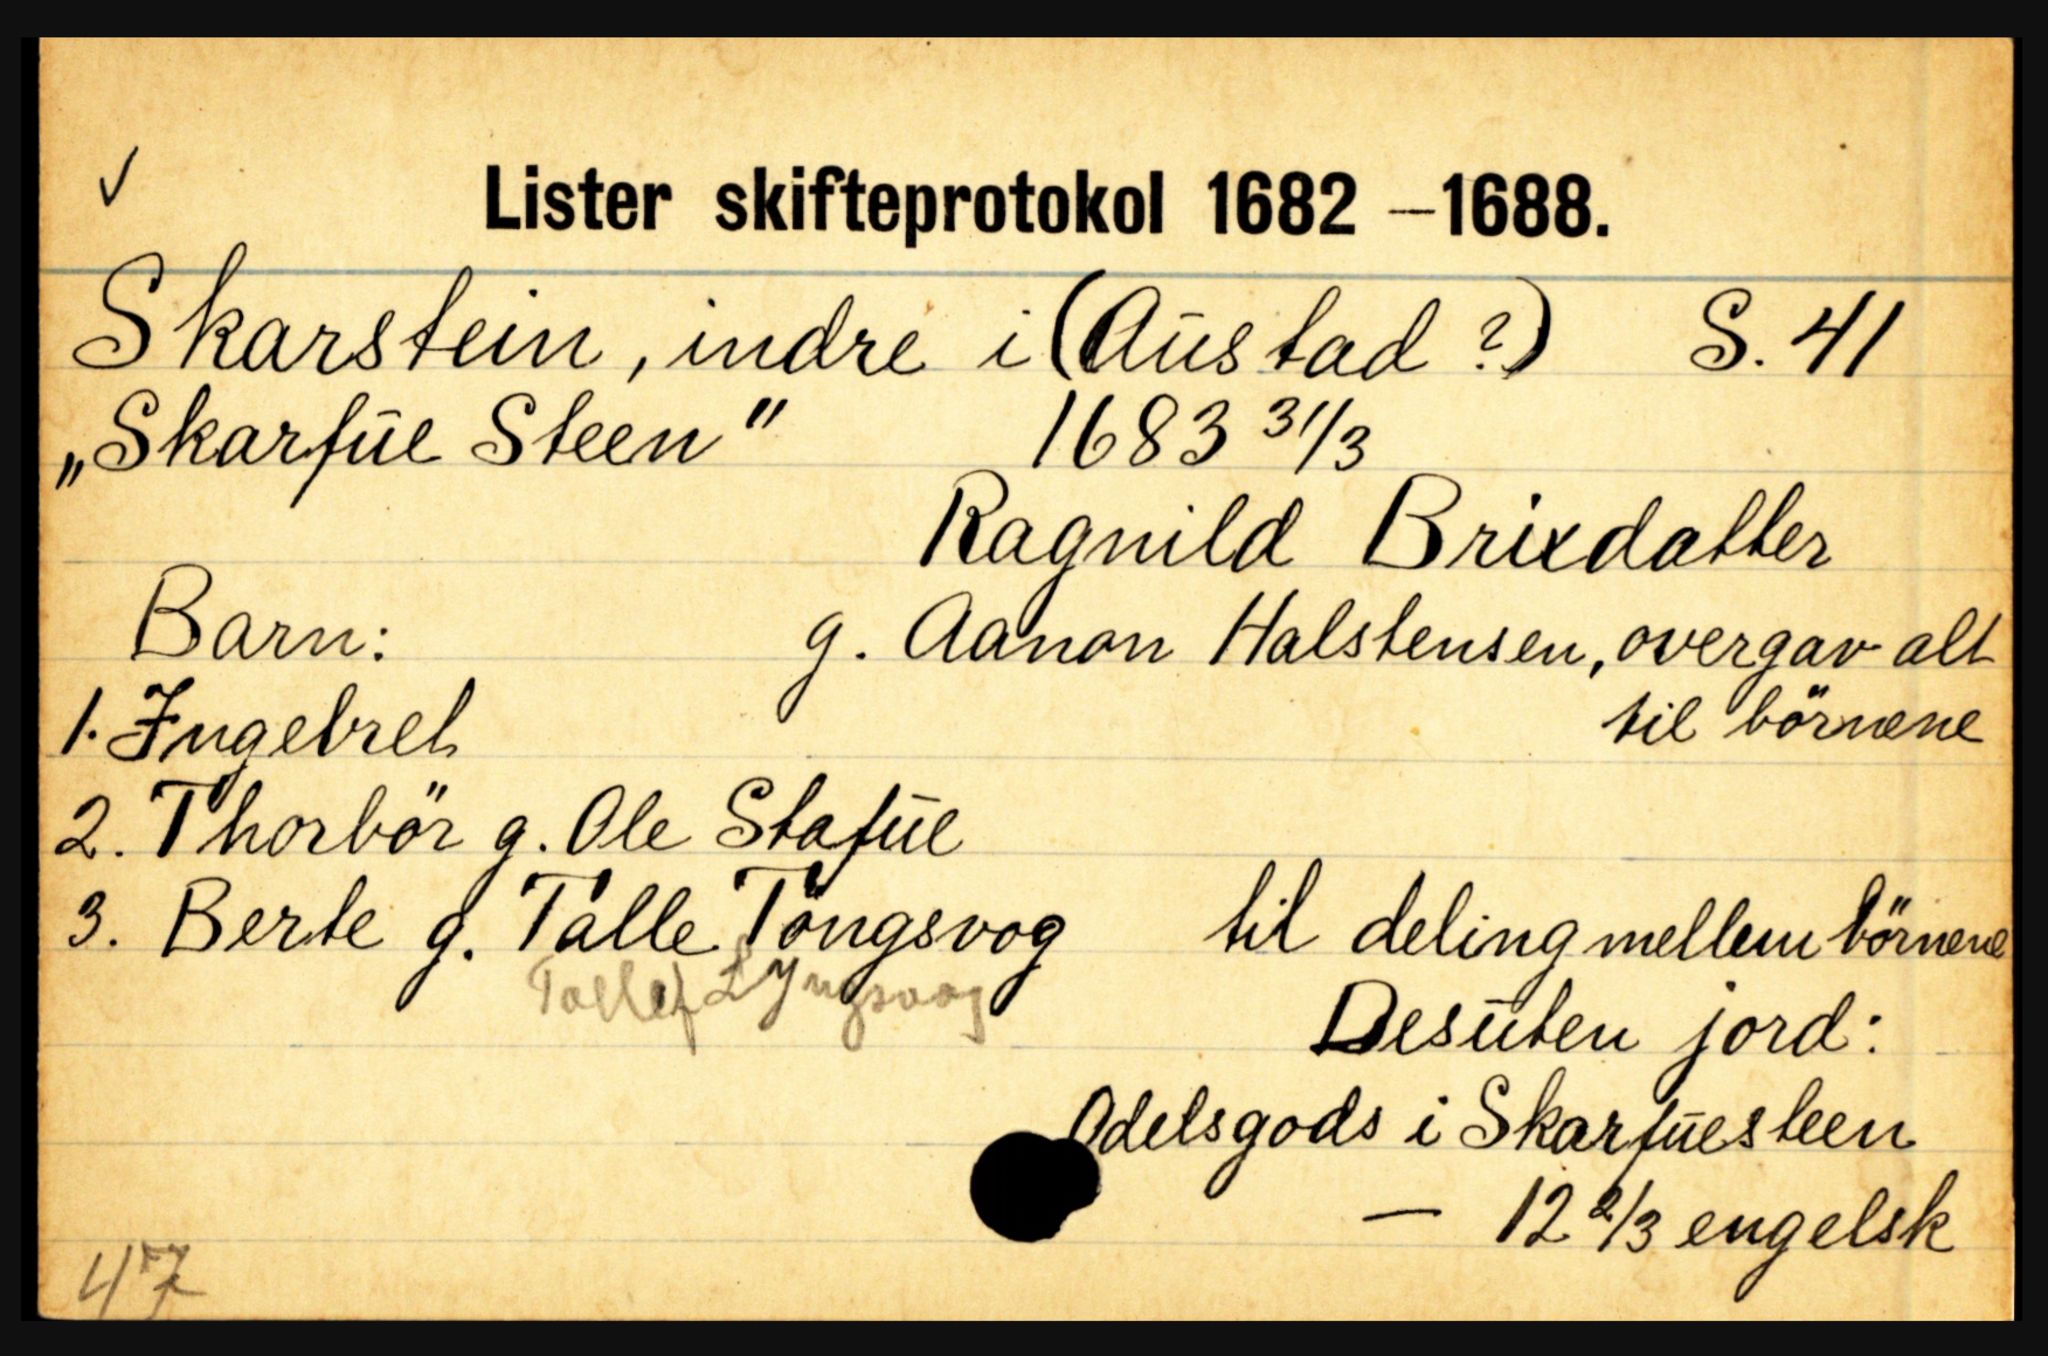 ✓
Lister skifteprotokol 1682 —1688.
Skarstein, indre i (Austad ?) S. 41
„Skarfue Steen" 1683 31/3
Ragnild Brixdatter
Barn: g. Aanon Halstensen, overgav alt
1. Ingebret til börnene
2. Thorbör g. Ole Stafue
3. Berte g. Talle Töngsvog til deling mellem börnene
Tollef Lyngsvog
Desuten jord:
Odelsgods i Skarfuesteen
— 12 2/3 engelsk
47